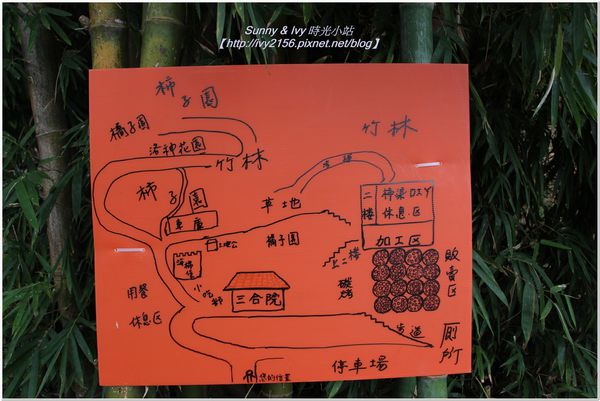 Sunny & Ivy 時光小站
【http://ivy2156.pixnet.net/blog】
柿子園
橘子園
洛神花園
竹林
竹林
柿子園
車庫
草地
步道
二樓
柿染DIY
休息區
加工區
土地公
橘子園
上二樓
小吃部
三合院
碳烤
用餐
休息區
步道
廁所
停車場
您的位置